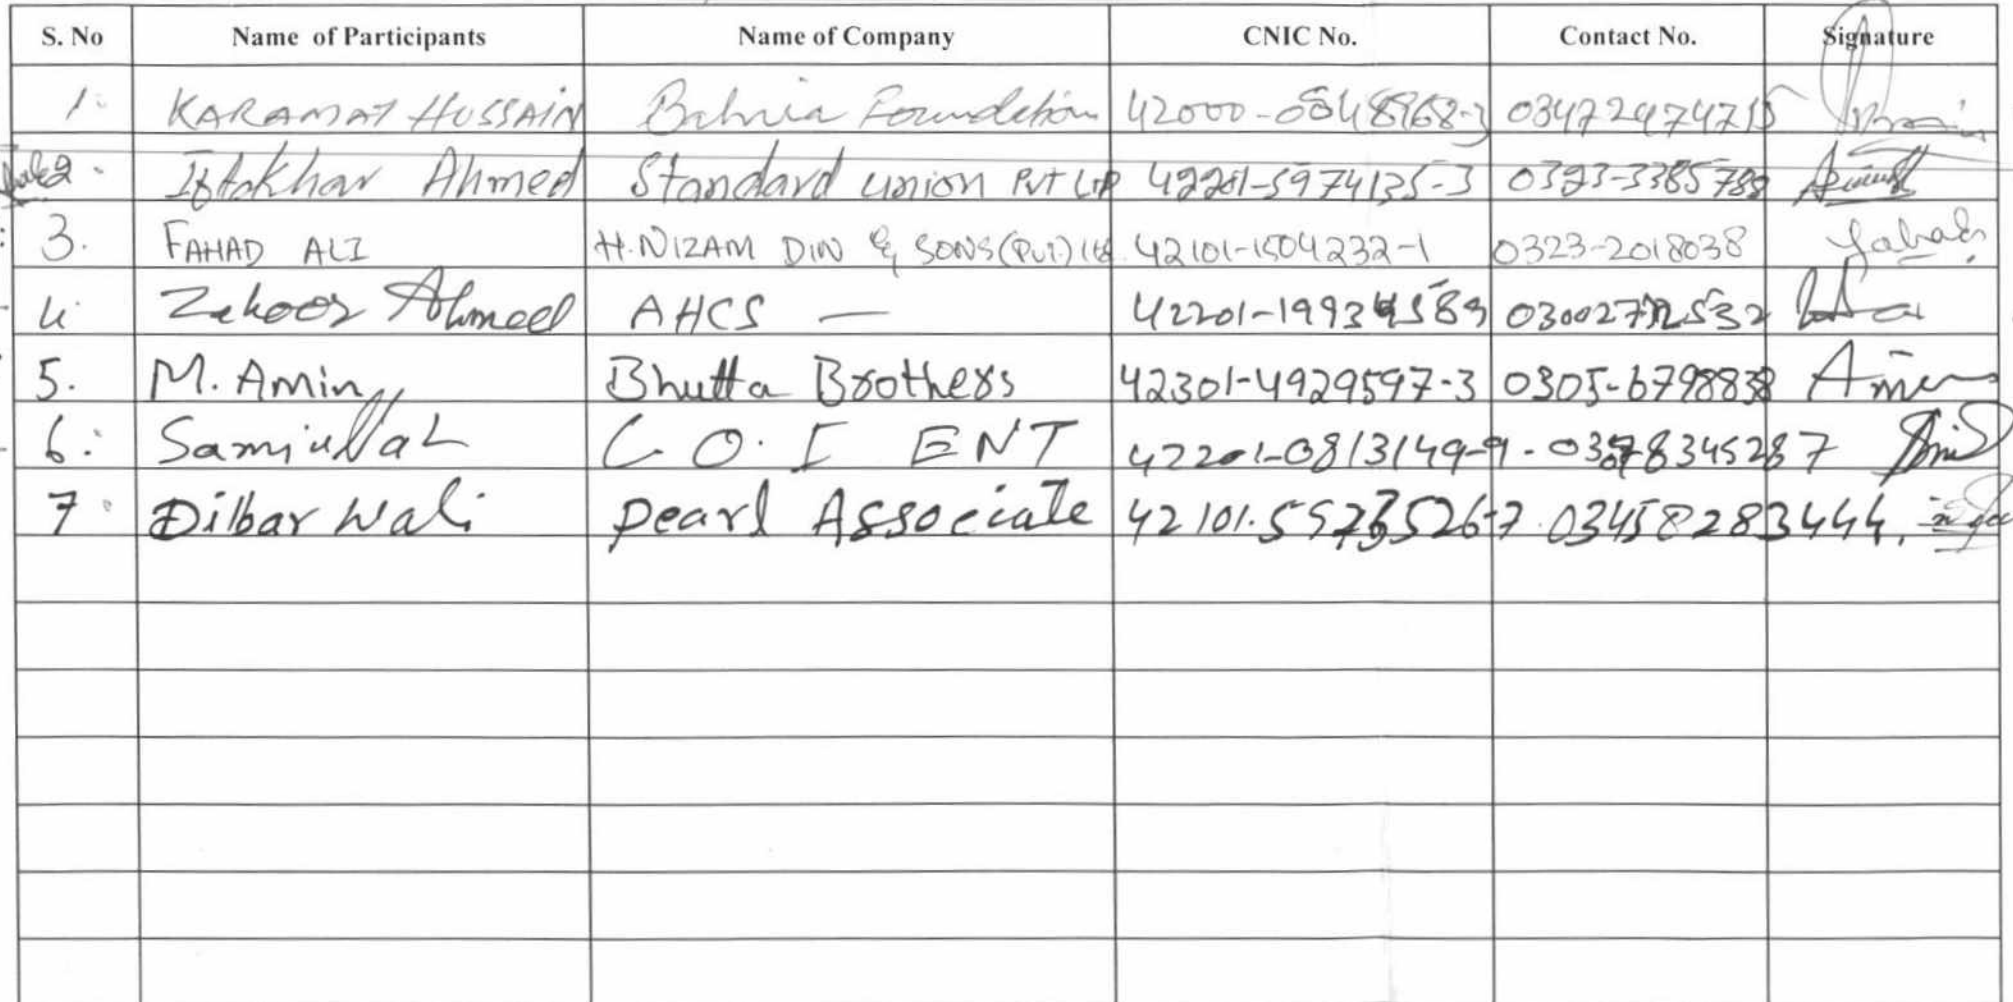 S. No Name of Participants Name of Company CNIC No. Contact No. Signature
1. KARAMAT HUSSAIN Bahria Foundation 42000-0048968-3 03472474715
2. Iftakhar Ahmed Standard union PVT LTD 42201-5974135-3 0323-3385788
3. FAHAD ALI H.NIZAM DIN & SONS (PVT.) Ltd 42101-1504232-1 0323-2018038 Fahad
4. Zahoor Ahmed AHCS — 42201-19934589
5. M. Amin Bhutta Brothers 42301-4929597-3 0305-6798838 Amin
6. Samiullah C.O.I ENT 42201-0813149-9
7. Dilbar Wali pearl Associate 03458283444.